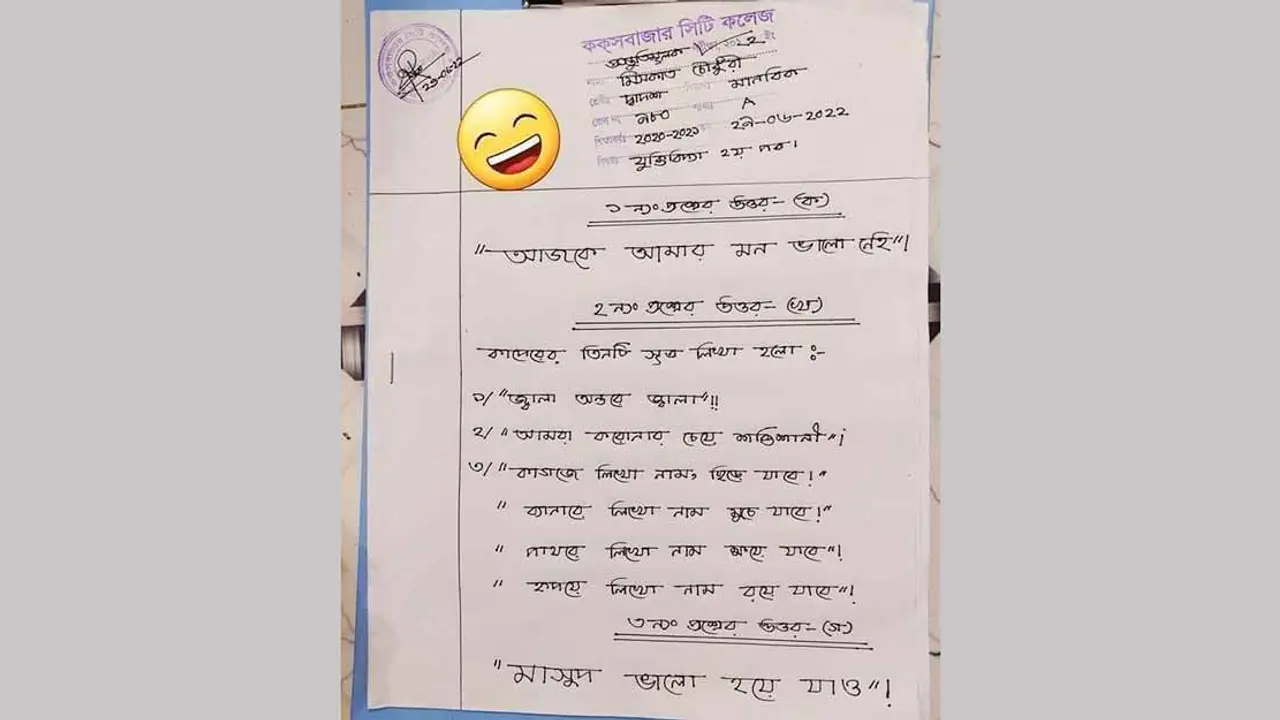 কক্সবাজার সিটি কলেজ
২২
চৌধুরী
দ্বাদশ মানবিক
A
2020-2021 ২৭-০৬-2022
যুক্তিবিদ্যা ২য় পত্র।
২৭-০৬-২২
১ নং প্রশ্নের উত্তর- (ক)
"আজকে আমার মন ভালো নেই"।
২ নং প্রশ্নের উত্তর- (খ)
কাদেরের তিনটি সূত্র লিখা হলো :-
১/ "জ্বালা অন্তরে জ্বালা"!!
২/ "আমরা করোনার চেয়ে শক্তিশালী"!
৩/ "কাগজে লিখো নাম, ছিঁড়ে যাবে!"
" ব্যানারে লিখো নাম মুছে যাবে!"
" পাথরে লিখো নাম ক্ষয়ে যাবে"!
" হৃদয়ে লিখো নাম রয়ে যাবে"!
৩ নং প্রশ্নের উত্তর- (গ)
"মাসুদ ভালো হয়ে যাও"!